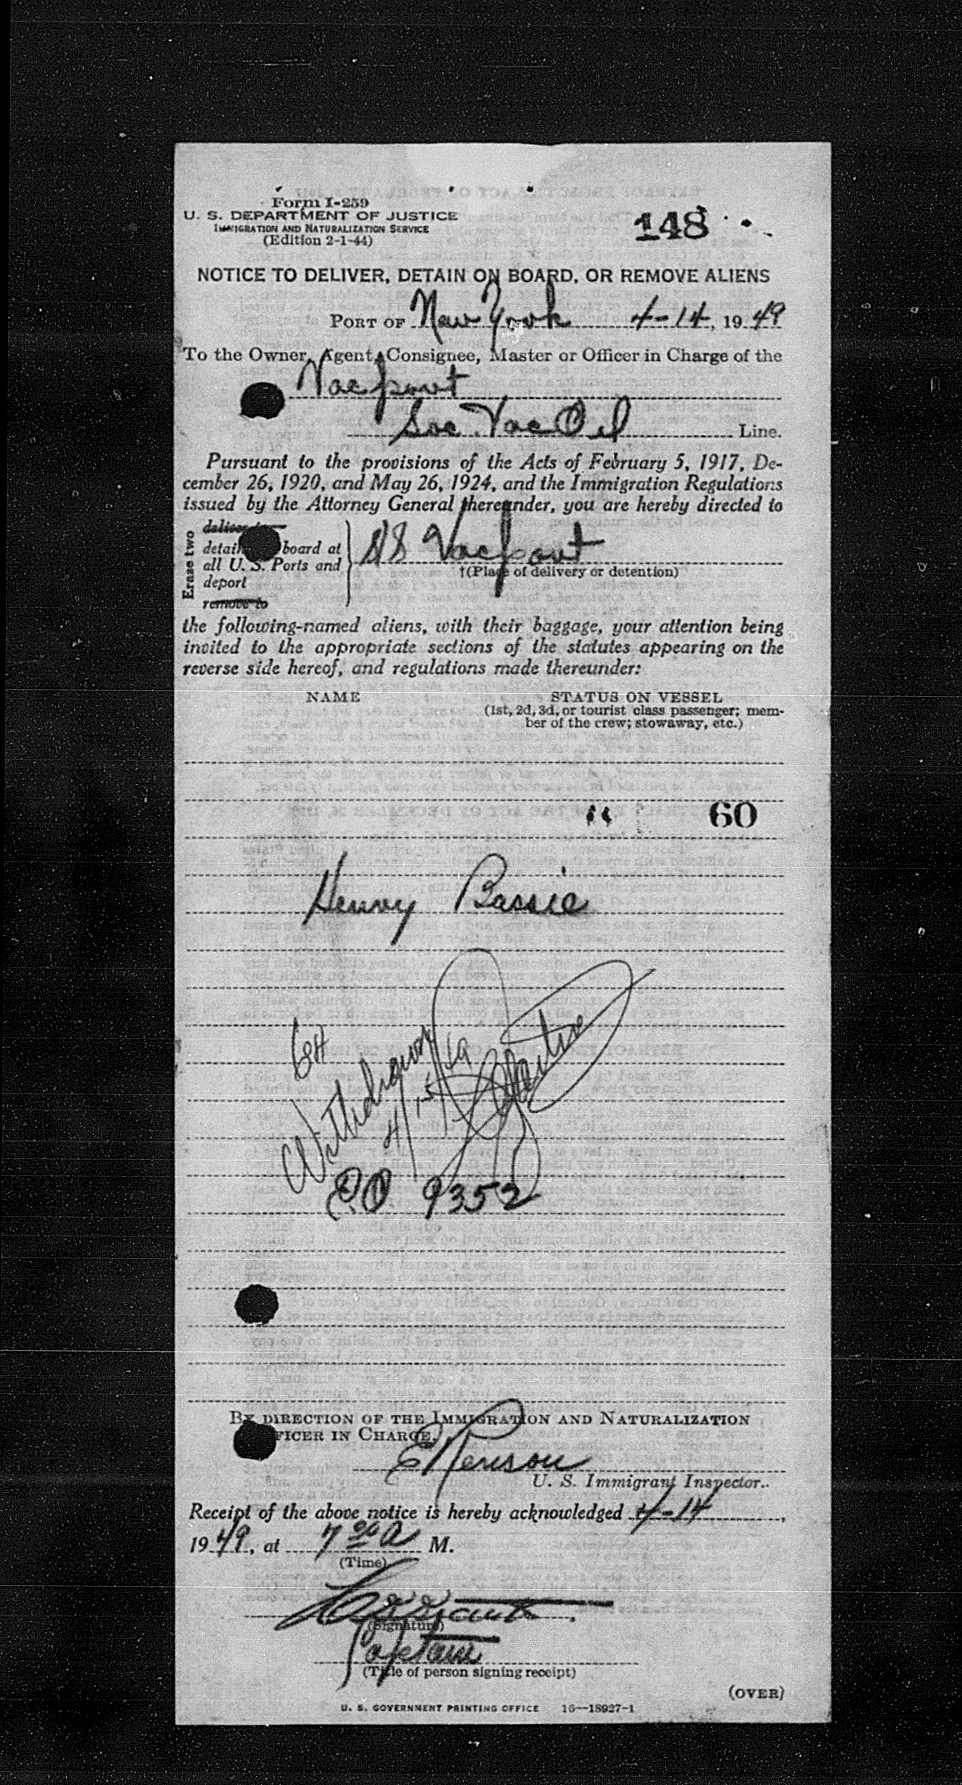 Form I-259
U. S. DEPARTMENT OF JUSTICE
IMMIGRATION AND NATURALIZATION SERVICE
(Edition 2-1-44)
148
NOTICE TO DELIVER, DETAIN ON BOARD, OR REMOVE ALIENS
PORT OF New York 4-14, 1949
To the Owner, Agent, Consignee, Master or Officer in Charge of the
Vacport
Soc. Vac Oil Line.
Pursuant to the provisions of the Acts of February 5, 1917, De-
cember 26, 1920, and May 26, 1924, and the Immigration Regulations
issued by the Attorney General thereunder, you are hereby directed to
Erase two
deliver to
detain board at
all U. S. Ports and
deport
remove to
SS Vacport
†(Place of delivery or detention)
the following-named aliens, with their baggage, your attention being
invited to the appropriate sections of the statutes appearing on the
reverse side hereof, and regulations made thereunder:
NAME STATUS ON VESSEL
(1st, 2d, 3d, or tourist class passenger; mem-
ber of the crew; stowaway, etc.)
60
Henry Bassie
Withdrawn
4/15/49
P.O. 9352
BY DIRECTION OF THE IMMIGRATION AND NATURALIZATION
OFFICER IN CHARGE,
U. S. Immigrant Inspector.
Receipt of the above notice is hereby acknowledged 4-14,
1949, at 7 30 A M.
(Time)
(Signature)
Captain
(Title of person signing receipt)
(OVER)
U. S. GOVERNMENT PRINTING OFFICE 16—18927-1